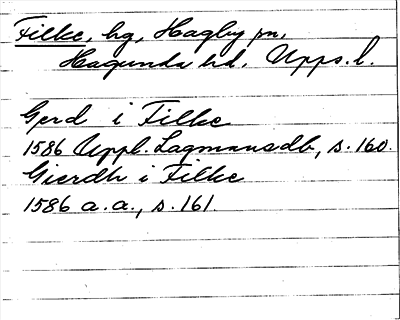 Filke, hg, Hagby sn,
Hagunda hd, Upps. l.
Gerd i Filke
1586 Uppl. Lagmansdb, s. 160.
Gierdh i Filke
1586 a. a., s. 161.